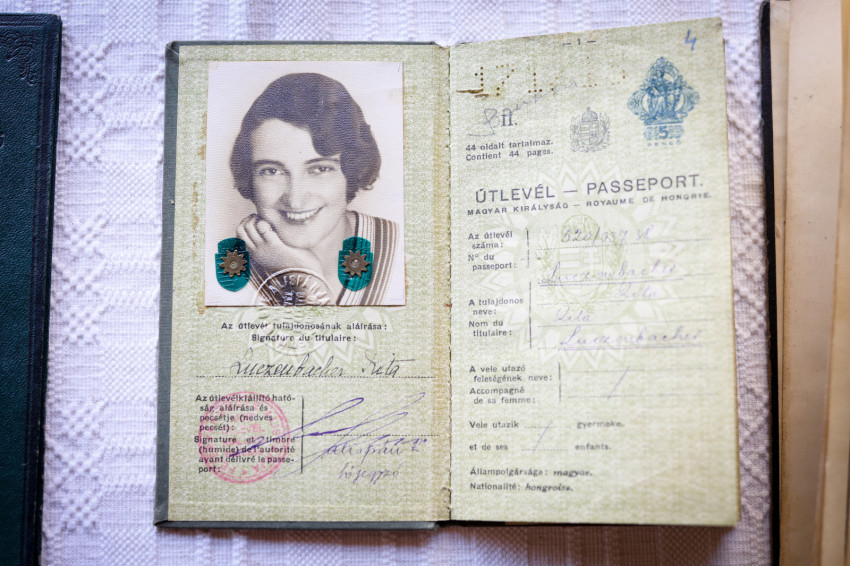 Az útlevél tulajdonosának aláírása:
Signature du titulaire:
Luczenbacher Rita
Az útlevélkiállító ható-
ság aláírása és
pecsétje (nedves
pecsét):
Signature et timbre
(humide) de l'autorité
ayant délivré le passe-
port:
— 1 —
4
fl.
5
PENGŐ
44 oldalt tartalmaz.
Contient 44 pages.
ÚTLEVÉL — PASSEPORT.
MAGYAR KIRÁLYSÁG — ROYAUME DE HONGRIE.
Az útlevél
száma:
Nº du
passeport:
Luczenbacher
Rita
A tulajdonos
neve:
Nom du
titulaire:
Rita
Luczenbacher
A vele utazó
feleségének neve:
Accompagné
de sa femme:
Vele utazik gyermeke.
et de ses enfants.
Állampolgársága: magyar.
Nationalité: hongroise.